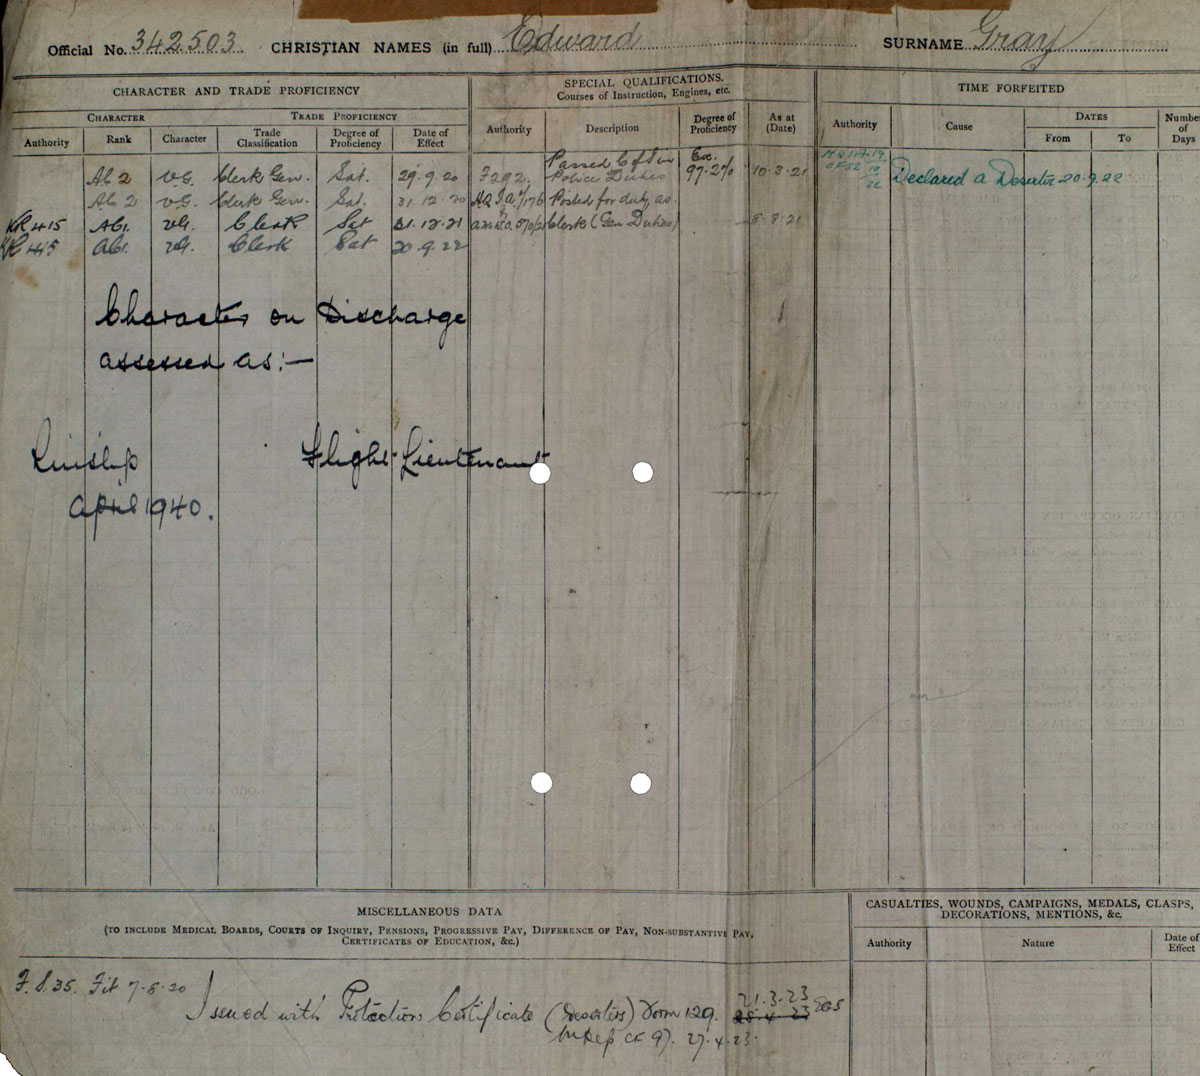 Official No. 342503 CHRISTIAN NAMES (in full) Edward SURNAME Gray
CHARACTER AND TRADE PROFICIENCY
SPECIAL QUALIFICATIONS.
Courses of Instruction, Engines, etc.
TIME FORFEITED
CHARACTER
TRADE PROFICIENCY
Authority
Rank
Character
Trade Classification
Degree of Proficiency
Date of Effect
Authority
Description
Degree of Proficiency
As at (Date)
Authority
Cause
DATES
From
To
Number of Days
AC 2 V.G. Clerk Gen. Sat. 29.9.20 F292. Passed C of I in Police Duties Exc. 97.2% 10.3.21
Declared a Deserter 20.9.22
AC 2 V.G. Clerk Gen. Sat. 31.12.20 Posted for duty as
KR 415 AC1. VG. Clerk Sat 31.12.21 Clerk (Gen Duties) 8.21
KR 415 AC1. VG. Clerk Sat 20.9.22
Character on Discharge
assessed as:—
Ruislip Flight Lieutenant
April 1940.
MISCELLANEOUS DATA
(TO INCLUDE MEDICAL BOARDS, COURTS OF INQUIRY, PENSIONS, PROGRESSIVE PAY, DIFFERENCE OF PAY, NON-SUBSTANTIVE PAY,
CERTIFICATES OF EDUCATION, &c.)
CASUALTIES, WOUNDS, CAMPAIGNS, MEDALS, CLASPS,
DECORATIONS, MENTIONS, &c.
Authority
Nature
Date of Effect
F.S.35. Fit 7-8-20
Issued with Protection Certificate (Deserters) Form 129. 21.3.23
27.4.23.